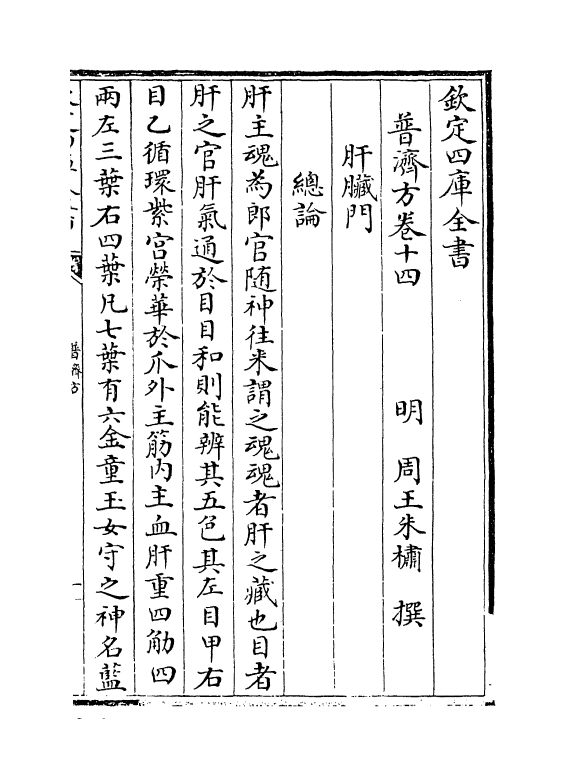 欽定四庫全書
普濟方卷十四　明　周王朱橚　撰
肝臟門
總論
肝主魂為郎官随神往来謂之魂魂者肝之藏也目者
肝之官肝氣通於目目和則能辨其五色其左目甲右
目乙循環紫宫榮華於爪外主筋内主血肝重四觔四
兩左三葉右四葉凡七葉有六金童玉女守之神名藍
普濟方
一